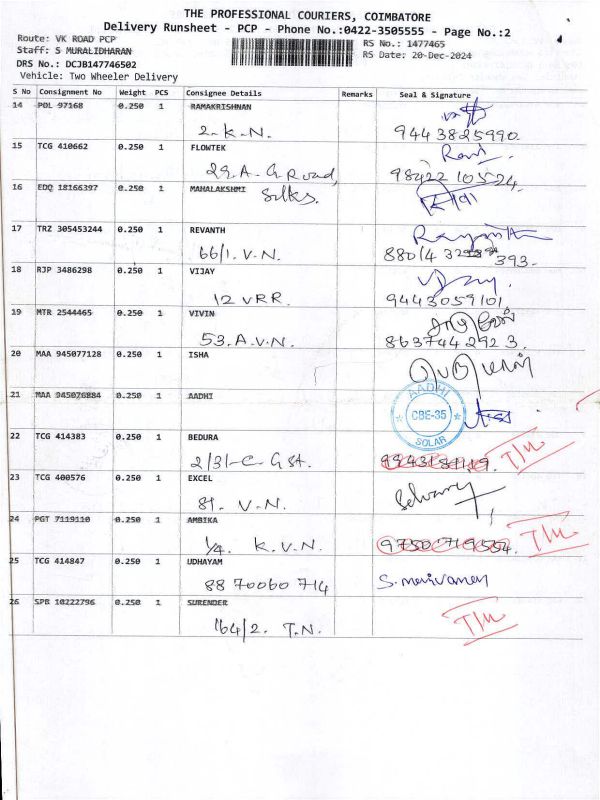 THE PROFESSIONAL COURIERS, COIMBATORE
Delivery Runsheet - PCP - Phone No.:0422-3505555 - Page No.:2
Route: VK ROAD PCP
RS No.: 1477465
Staff: S MURALIDHARAN
RS Date: 20-Dec-2024
DRS No.: DCJB147746502
Vehicle: Two Wheeler Delivery
S No Consignment No Weight PCS Consignee Details Remarks Seal & Signature
14 POL 97168 0.250 1 RAMAKRISHNAN
2. K. N. 9443825990
15 TCG 410662 0.250 1 FLOWTEK Ravi
29. A. G Road, 98422 10524
16 EDQ 18166397 0.250 1 MAHALAKSHMI Silks.
17 TRZ 305453244 0.250 1 REVANTH
66/1. V. N. 88014 393.
18 RJP 3486298 0.250 1 VIJAY Vijay
12 VRR. 9443059101
19 MTR 2544465 0.250 1 VIVIN
53. A. V. N. 8637442923.
20 MAA 945077128 0.250 1 ISHA
21 MAA 945076884 0.250 1 AADHI
AADHI
CBE-35
SOLAR
22 TCG 414383 0.250 1 BEDURA
2/31-C- G St.
23 TCG 400576 0.250 1 EXCEL
81. V. N.
24 PGT 7119110 0.250 1 AMBIKA
1/4. K. V. N.
25 TCG 414847 0.250 1 UDHAYAM
88 70060 714
26 SPR 10222796 0.250 1 SURENDER
164/2. T. N.